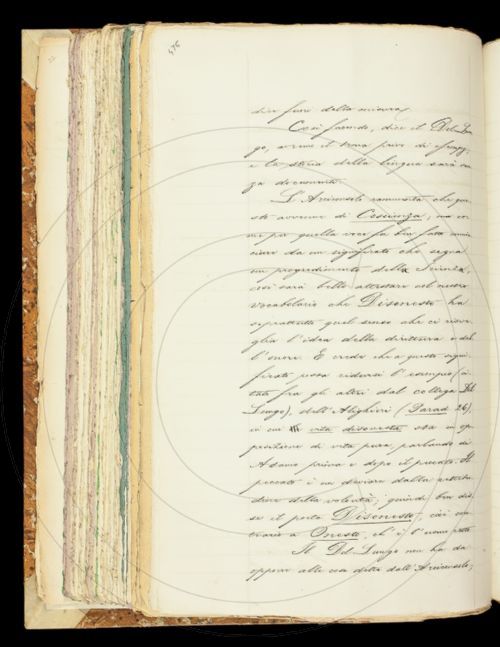 476
dire fuori della misura.
Così facendo, dice il Del Lun-
go, avremo il tema privo di esempj,
e la storia della lingua sarà sen-
za documenti.
L'Arciconsolo rammenta che que-
sto avvenne di Coscienza; ma co-
me per quella voce fu ben fatto comin-
ciare da un significato che segna
un progredimento della Scienza,
così sarà bello attestare nel nostro
vocabolario che Disonestà ha
soprattutto quel senso che ci risve-
glia l'idea della dirittura e del-
l'onore. E crede che a questo signi-
ficato possa ridursi l'esempio (ci-
tato fra gli altri dal collega Del
Lungo), dell'Alighieri (Parad. 26),
in cui vita disonesta sta in op-
posizione di vita pura, parlando di
Adamo prima e dopo il peccato. Il
peccato è un deviare dalla rettitu-
dine della volontà; quindi ben dis-
se il poeta Disonesta, cioè con-
traria a Onesta, ch'è l'uomo retto.
Il Del Lungo non ha da
opporre alle cose dette dall'Arciconsolo;